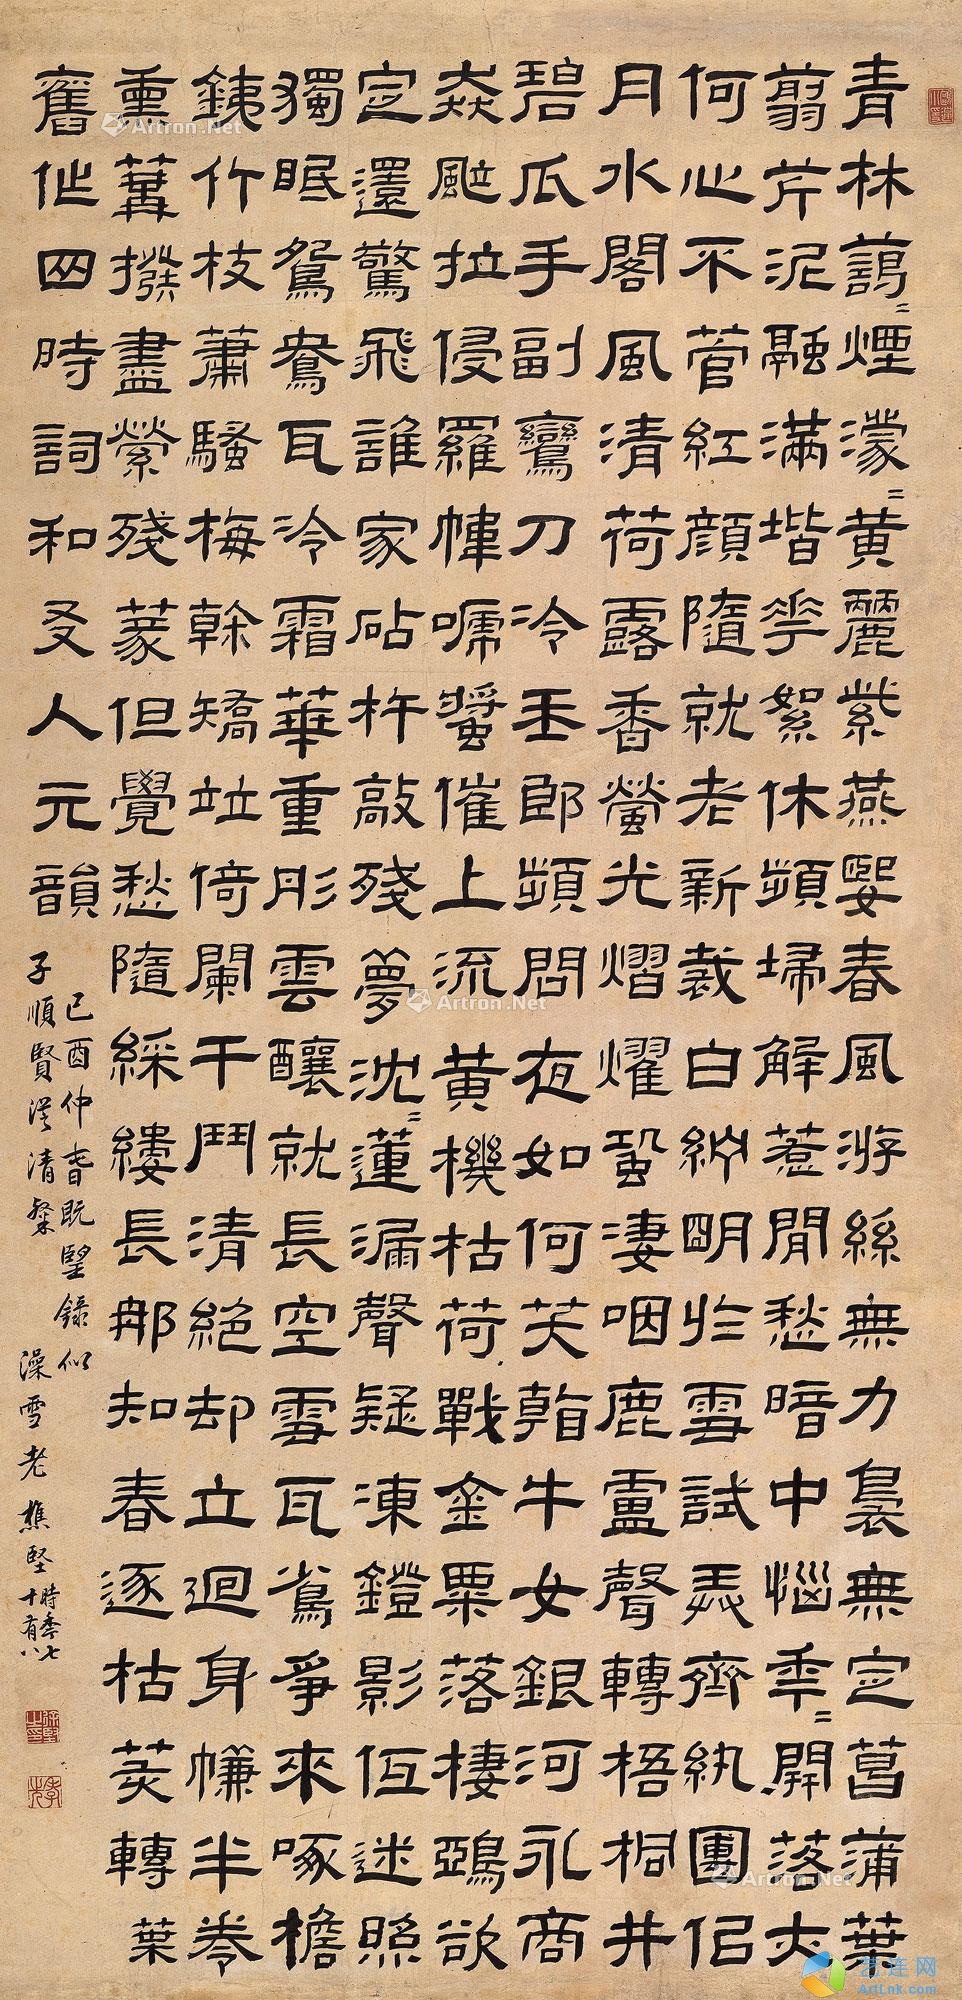 青林藹〻煙濛〻黃麗紫燕嬰春風游絲無力裊無定菖蒲葉
翦芹泥融滿堦花絮休頻掃解惹閒愁暗中惱年〻開落太
何心不管紅顏隨就老新裁白紵明於雪試弄齊紈團侶
月水閣風清荷露香螢光熠燿蛩淒咽鹿盧聲轉梧桐井
碧瓜手副鸞刀冷玉郎頻問夜如何笑指牛女銀河永商
猋颭拉侵羅幃嘑螿催上流黃機枯荷戰金粟落棲鴉欲
定還驚飛誰家砧杵敲殘夢沈〻蓮漏聲疑凍鐙影低迷照
獨眠鴛鴦瓦冷霜華重彤雲釀就長空雪瓦雀爭來啄檐
銕竹枝蕭騷梅榦矯竝倚闌干鬥清絕却立迴身㡘半卷
熏篝撥盡縈殘篆但覺愁隨綵縷長那知春逐枯荄轉葉
舊作四時詞和友人元韻
己酉仲春既望錄似
子順賢從清粲
澡雪老樵堅時年七
十有八
Artron.Net
Artron.Net
Artron.Net
艺连网
ArtLnk.com